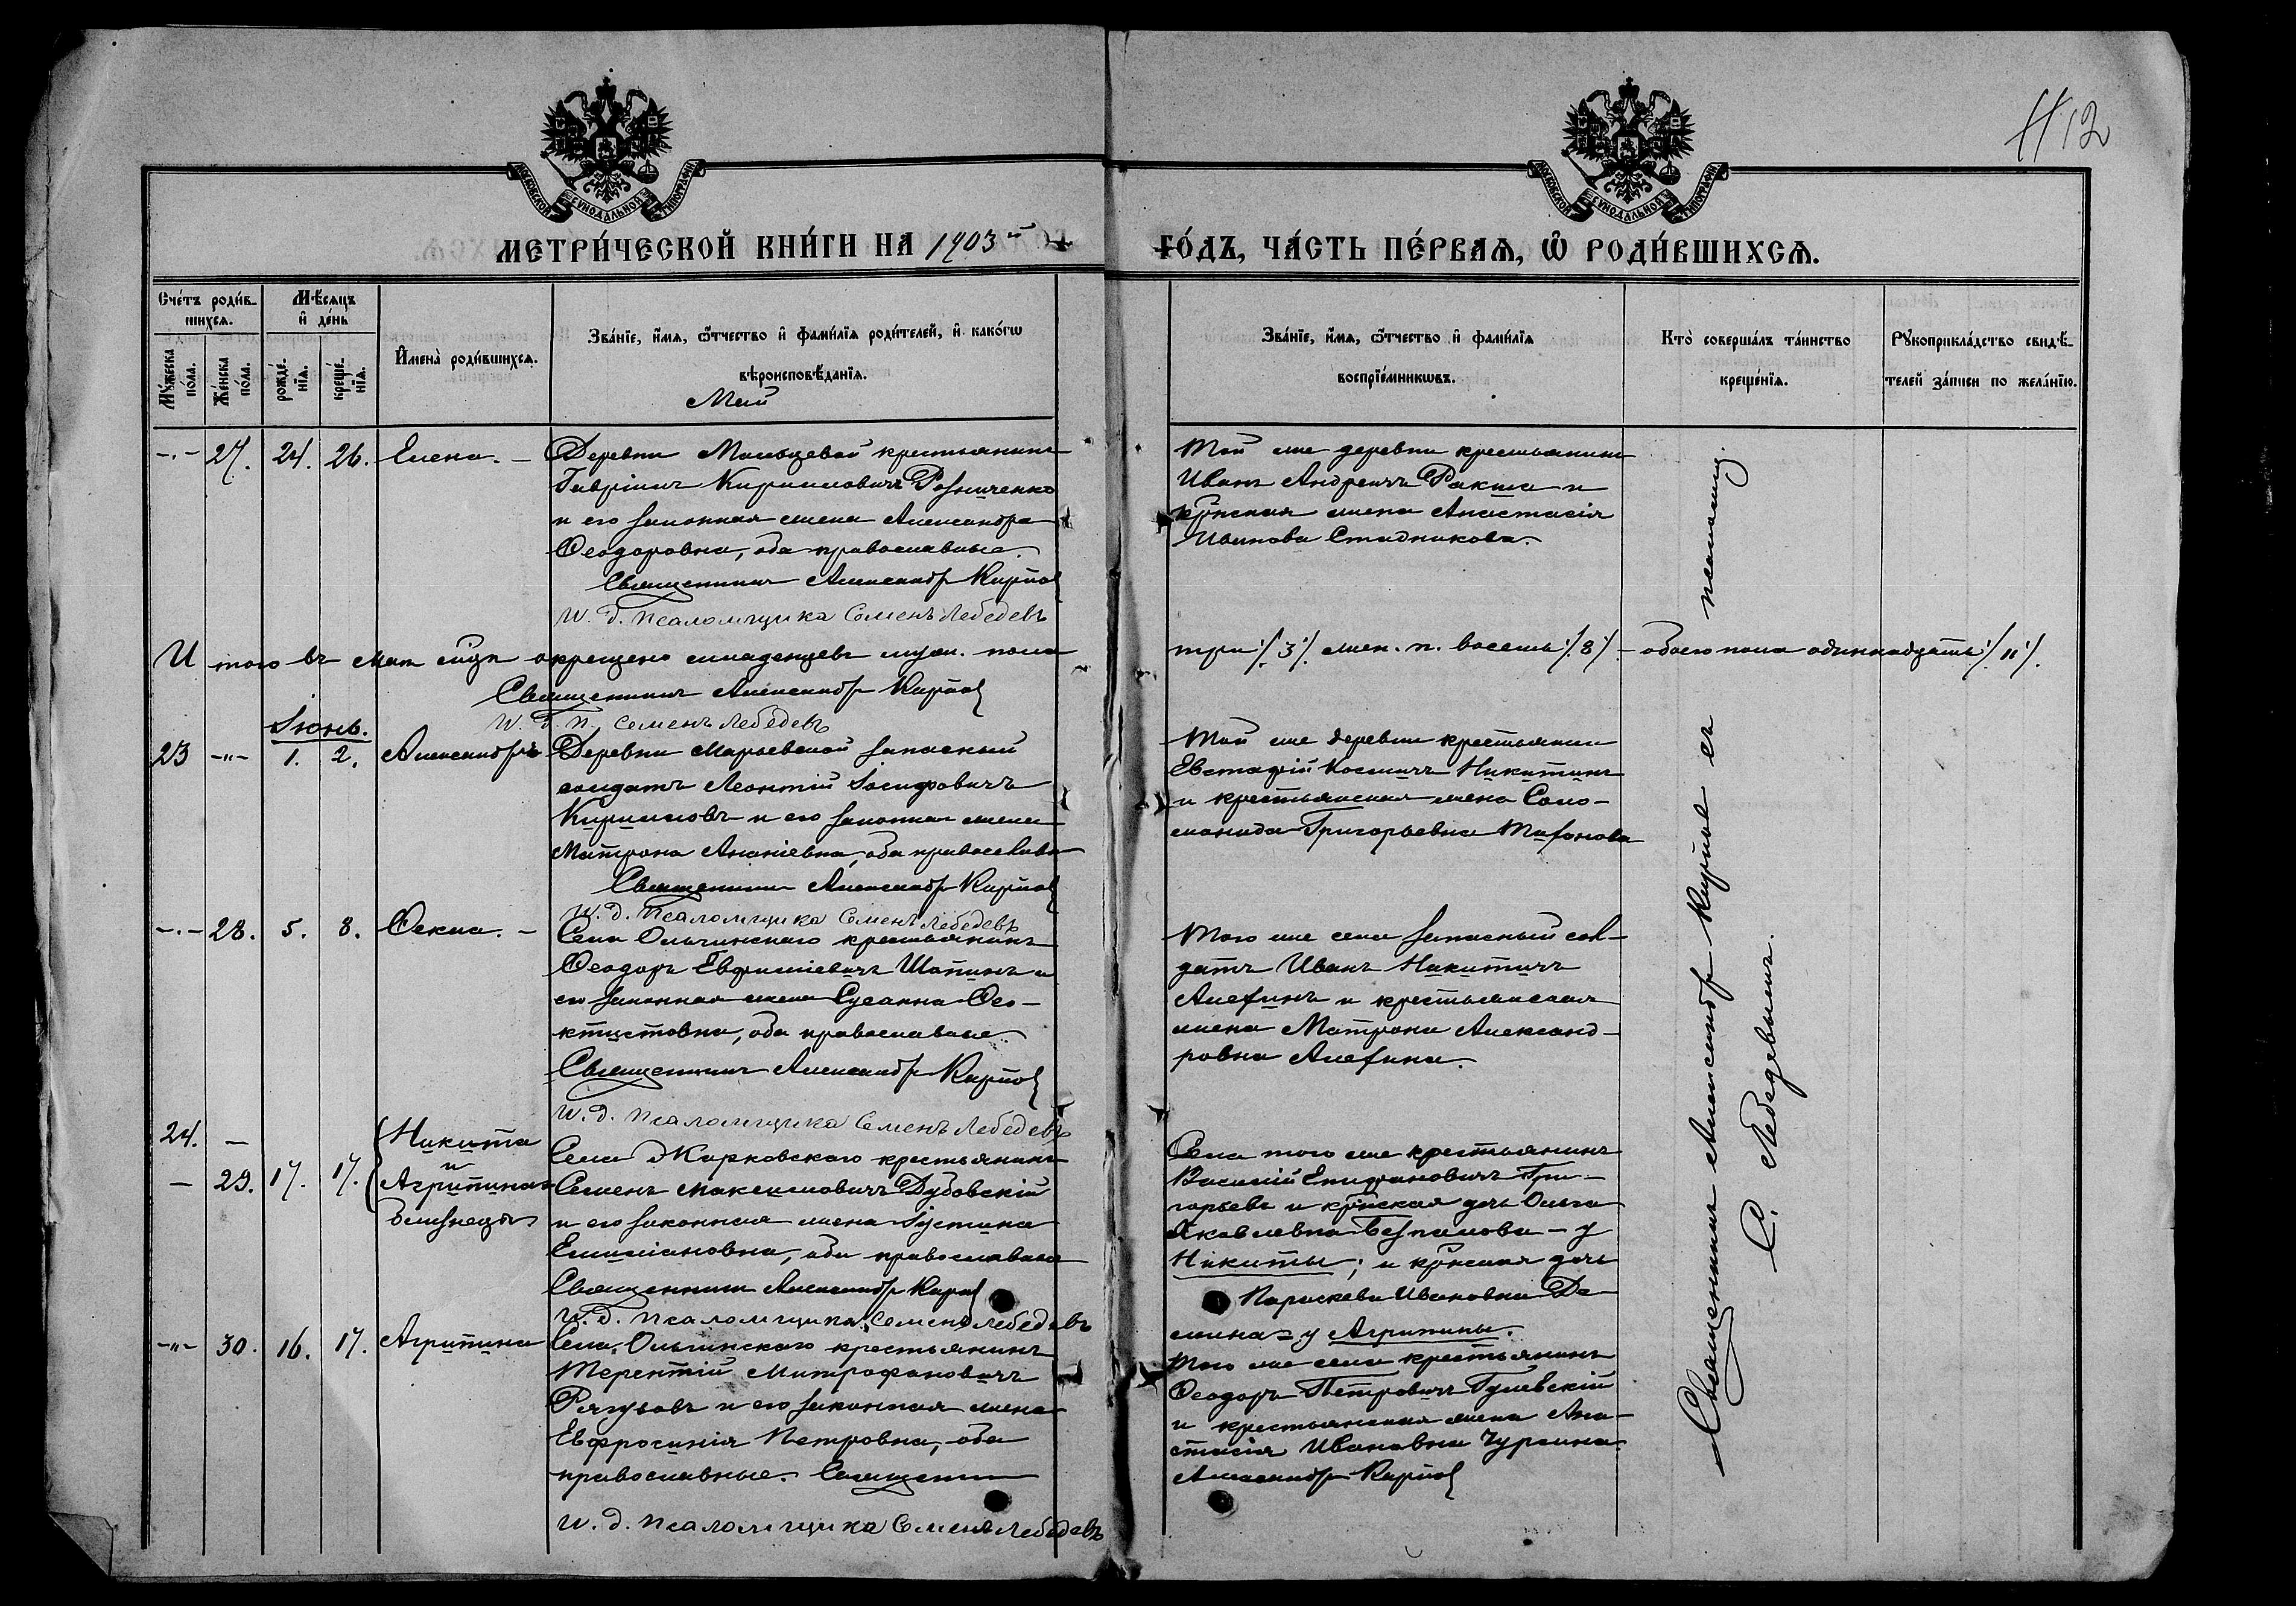 12
МОСКОВСКОЙ СѴНОДАЛЬНОЙ ТИПОГРАФІИ
МОСКОВСКОЙ СѴНОДАЛЬНОЙ ТИПОГРАФІИ
МЕТРИ́ЧЕСКОЙ КНИ́ГИ НА 1903й
ГО́ДЪ, ЧА́СТЬ ПЕ́РВАѦ, Ѽ РОДИ́ВШИХСѦ.
Сче́тъ роди́в-
шихсѧ.
Мꙋ́жеска по́ла.
Же́нска по́ла.
Мѣ́сѧцъ
и҆ де́нь
рожде́-
нїѧ.
креще́-
нїѧ.
И҆мена̀ роди́вшихсѧ.
Зва́нїе, и҆́мѧ, ѻ҆́тчество и҆ фами́лїѧ роди́телей, и҆ како́гѡ
вѣроисповѣ́данїѧ.
Зва́нїе, и҆́мѧ, ѻ҆́тчество и҆ фами́лїѧ
воспрїе́мникѡвъ.
Кто̀ соверша́лъ та́инство
креще́нїѧ.
Рꙋкоприкла́дство свидѣ́-
телей за́писи по жела́нїю.
Май
-.- 27. 24. 26. Елена. – Деревни крестьянинъ
Гавріилъ Кирилловичъ Резниченко
и его законная жена Александра
Ѳеодоровна, оба православные.
Священникъ Александръ Карпов
И. д. псаломщика Семенъ Лебедевъ
Той же деревни крестьянинъ
Иванъ Андреичъ Ракша и
крнская жена Анастасія
Иванова Стадникова.
Итого въ мае мцѣ окрещено младенцевъ муж. пола
три /3/. жен. п. восемь /8/. – обоего пола одиннадцать /11/.
Священникъ Александръ Карпов
И. д. п. Семенъ Лебедевъ
Іюнь.
23 -"- 1. 2. Александръ Деревни Марьевской запасный
солдатъ Леонтій Іосифовичъ
Кирилловъ и его законная жена
Матрона Ананіевна, оба православн
Священникъ Александръ Карпов
И. д. псаломщика Семенъ Лебедевъ
Той же деревни крестьянинъ
Евстафій Космичъ Никитинъ
и крестьянская жена Соло-
монида Григорьевна
-.- 28. 5. 8. Ѳекла. – Села Ольгинскаго крестьянинъ
Ѳеодоръ Евфиміевичъ Шапинъ и
его законная жена Сусанна Ѳео-
ктистовна, оба православные
Священникъ Александръ Карпов
И. д. псаломщика Семенъ Лебедевъ
Того же села запасный сол-
датъ Иванъ Никитичъ
Алехинъ и крестьянская
жена Матрона Александ-
ровна Алехина.
24. – 17. 17. Никита
и
– 29. Агрипина
близнецы
Села Жарковского крестьянинъ
Семенъ Максимовичъ Дубовскій
и его законная жена Іустина
Емиліановна, оба православные
Священникъ Александръ Карпов
И. д. псаломщика Семенъ Лебедевъ
Села того же крестьянинъ
Василій Епифановичъ Гри-
горьевъ и крнская дочь Ольга
Яковлевна – у
Никиты; и крнская дочь
Параскева Ивановна Де-
мина – у Агрипины.
-"- 30. 16. 17. Агрипина Села Ольгинского крестьянинъ
Терентій Митрофановичъ
и его законная жена
Евфросинія Петровна, оба
православные. Священник
И. д. псаломщика Семенъ Лебедевъ
Того же села крестьянинъ
Ѳеодоръ Петровичъ Гулевскій
и крестьянская жена Ана-
стасія Ивановна Чурсина
Александръ Карпов
Священникъ Александръ Карпов съ псаломщ.
С. Лебедевымъ.